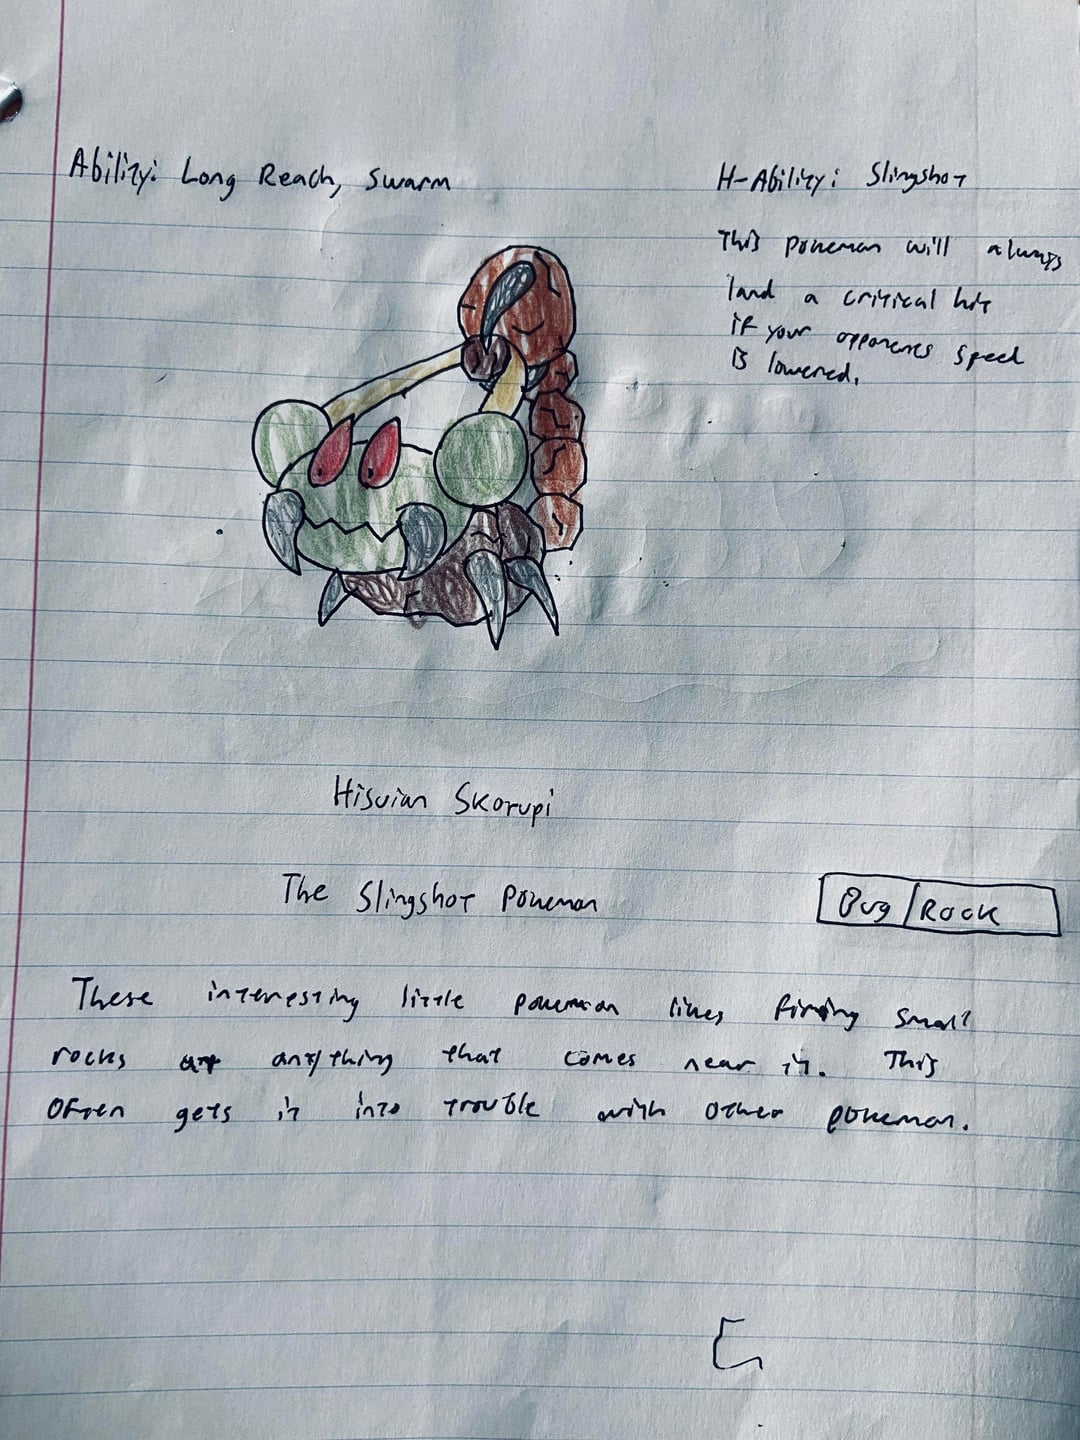 Ability: Long Reach, Swarm
H-Ability: Slingshot
This pokemon will always
land a critical hit
if your opponents speed
is lowered.
Hisuian Skorupi
The Slingshot Pokemon
Bug/Rock
These interesting little pokemon likes firing small
rocks at anything that comes near it. This
Often gets it into trouble with other pokemon.